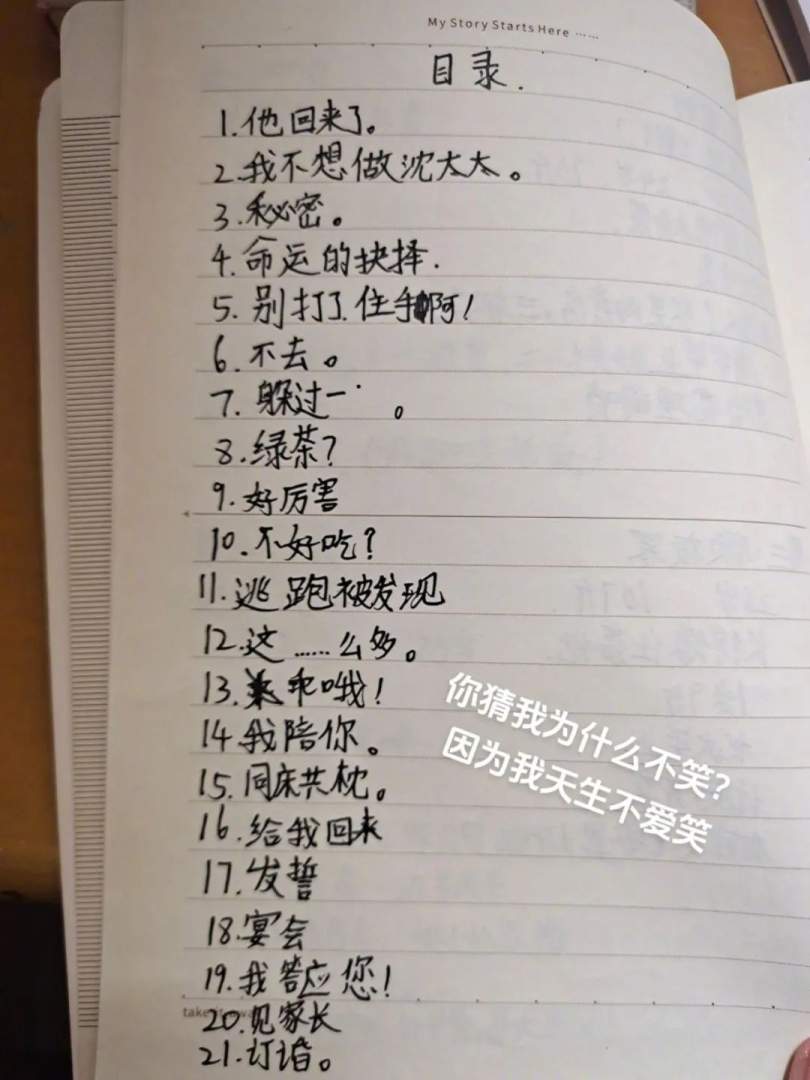 My Story Starts Here ……
目录.
1.他回来了。
2.我不想做沈太太。
3.秘密。
4.命运的抉择.
5.别打了住手啊!
6.不去。
7.躲过一 。
8.绿茶?
9.好厉害
10.不好吃?
11.逃跑被发现
12.这……么多。
13.乖哦!
14.我陪你。
15.同床共枕。
16.给我回来
17.发誓
18.宴会
19.我答应您!
take
20.见家长
21.订婚。
你猜我为什么不笑?
因为我天生不爱笑